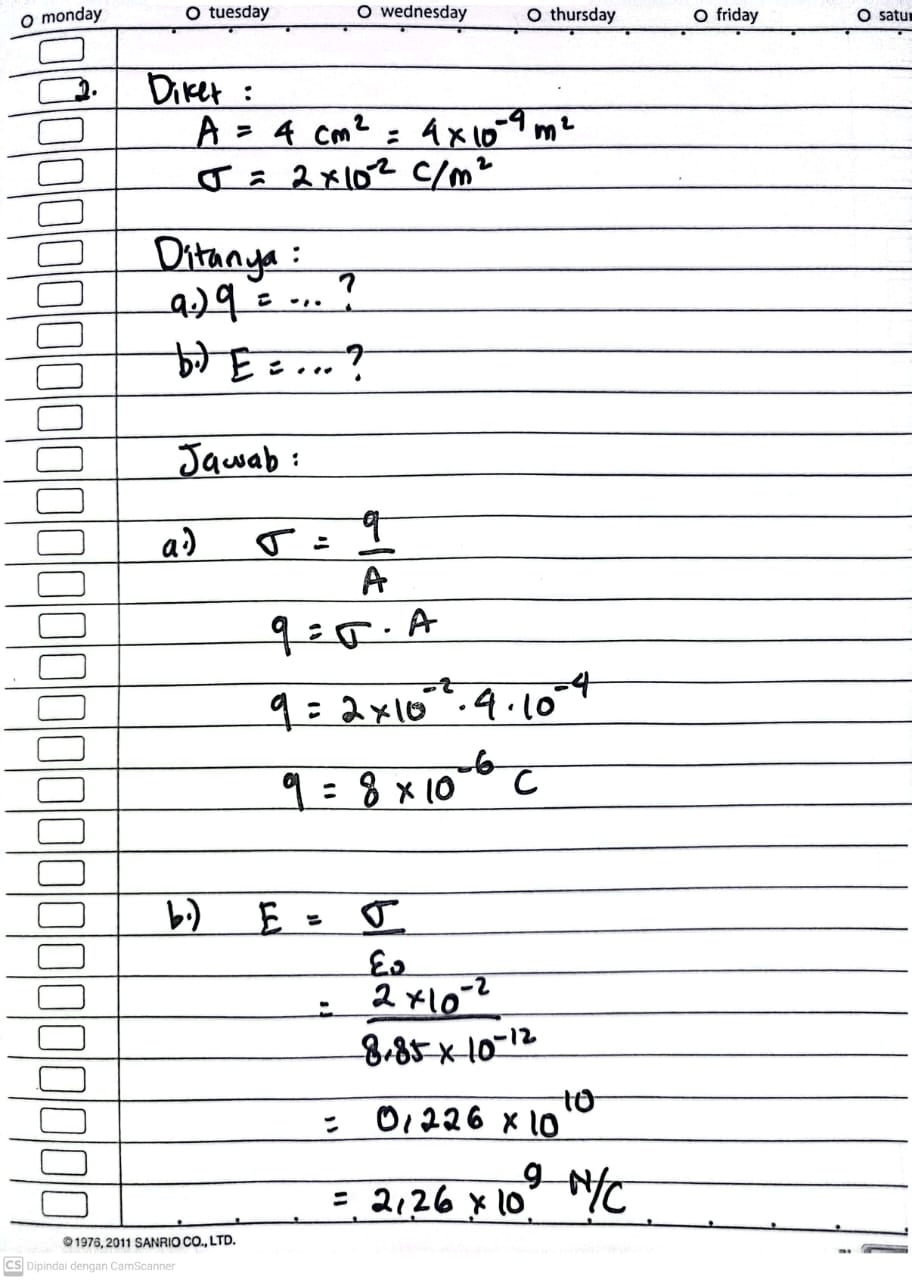 O monday O tuesday O wednesday O thursday O friday O satur
2. Diket :
A = 4 cm² = 4 x 10⁻⁴ m²
σ = 2 x 10⁻² C/m²
Ditanya :
a.) q = .... ?
b.) E = .... ?
Jawab :
a.) σ = q
A
q = σ . A
q = 2 x 10⁻² . 4 . 10⁻⁴
q = 8 x 10⁻⁶ C
b.) E = σ
ε₀
= 2 x 10⁻²
8,85 x 10⁻¹²
= 0,226 x 10¹⁰
= 2,26 x 10⁹ N/C
© 1976, 2011 SANRIO CO., LTD.
CS Dipindai dengan CamScanner